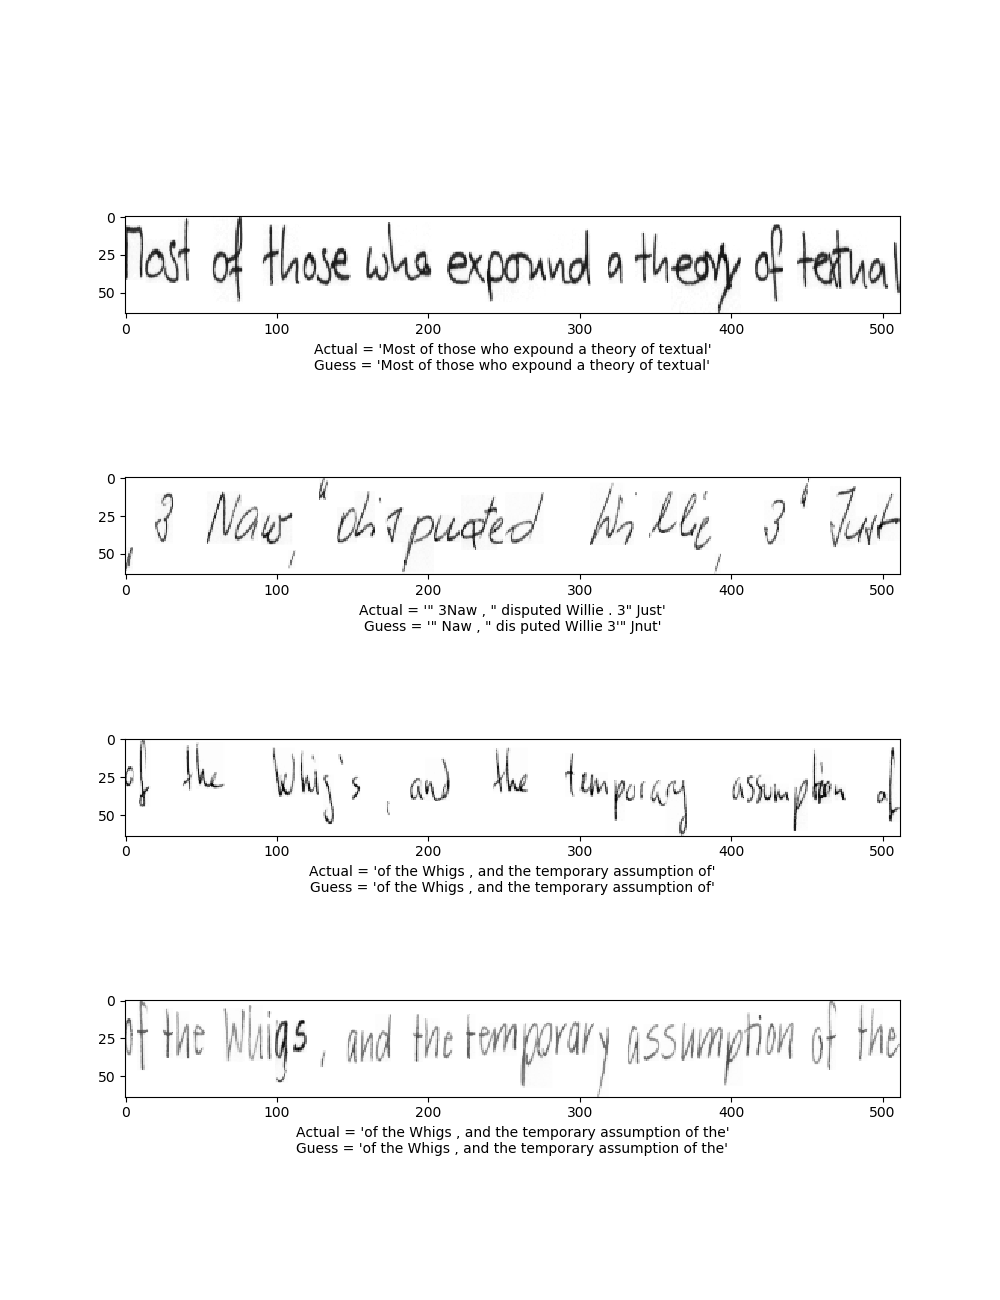 0
25
50
Most of those who expound a theory of textual
0 100 200 300 400 500
Actual = 'Most of those who expound a theory of textual'
Guess = 'Most of those who expound a theory of textual'
0
25
50
, 3 Naw, " disputed Willie, 3 " Just
0 100 200 300 400 500
Actual = '" 3Naw , " disputed Willie . 3" Just'
Guess = '" Naw , " dis puted Willie 3'" Jnut'
0
25
50
of the Whig's , and the temporary assumption of
0 100 200 300 400 500
Actual = 'of the Whigs , and the temporary assumption of'
Guess = 'of the Whigs , and the temporary assumption of'
0
25
50
of the Whigs , and the temporary assumption of the
0 100 200 300 400 500
Actual = 'of the Whigs , and the temporary assumption of the'
Guess = 'of the Whigs , and the temporary assumption of the'